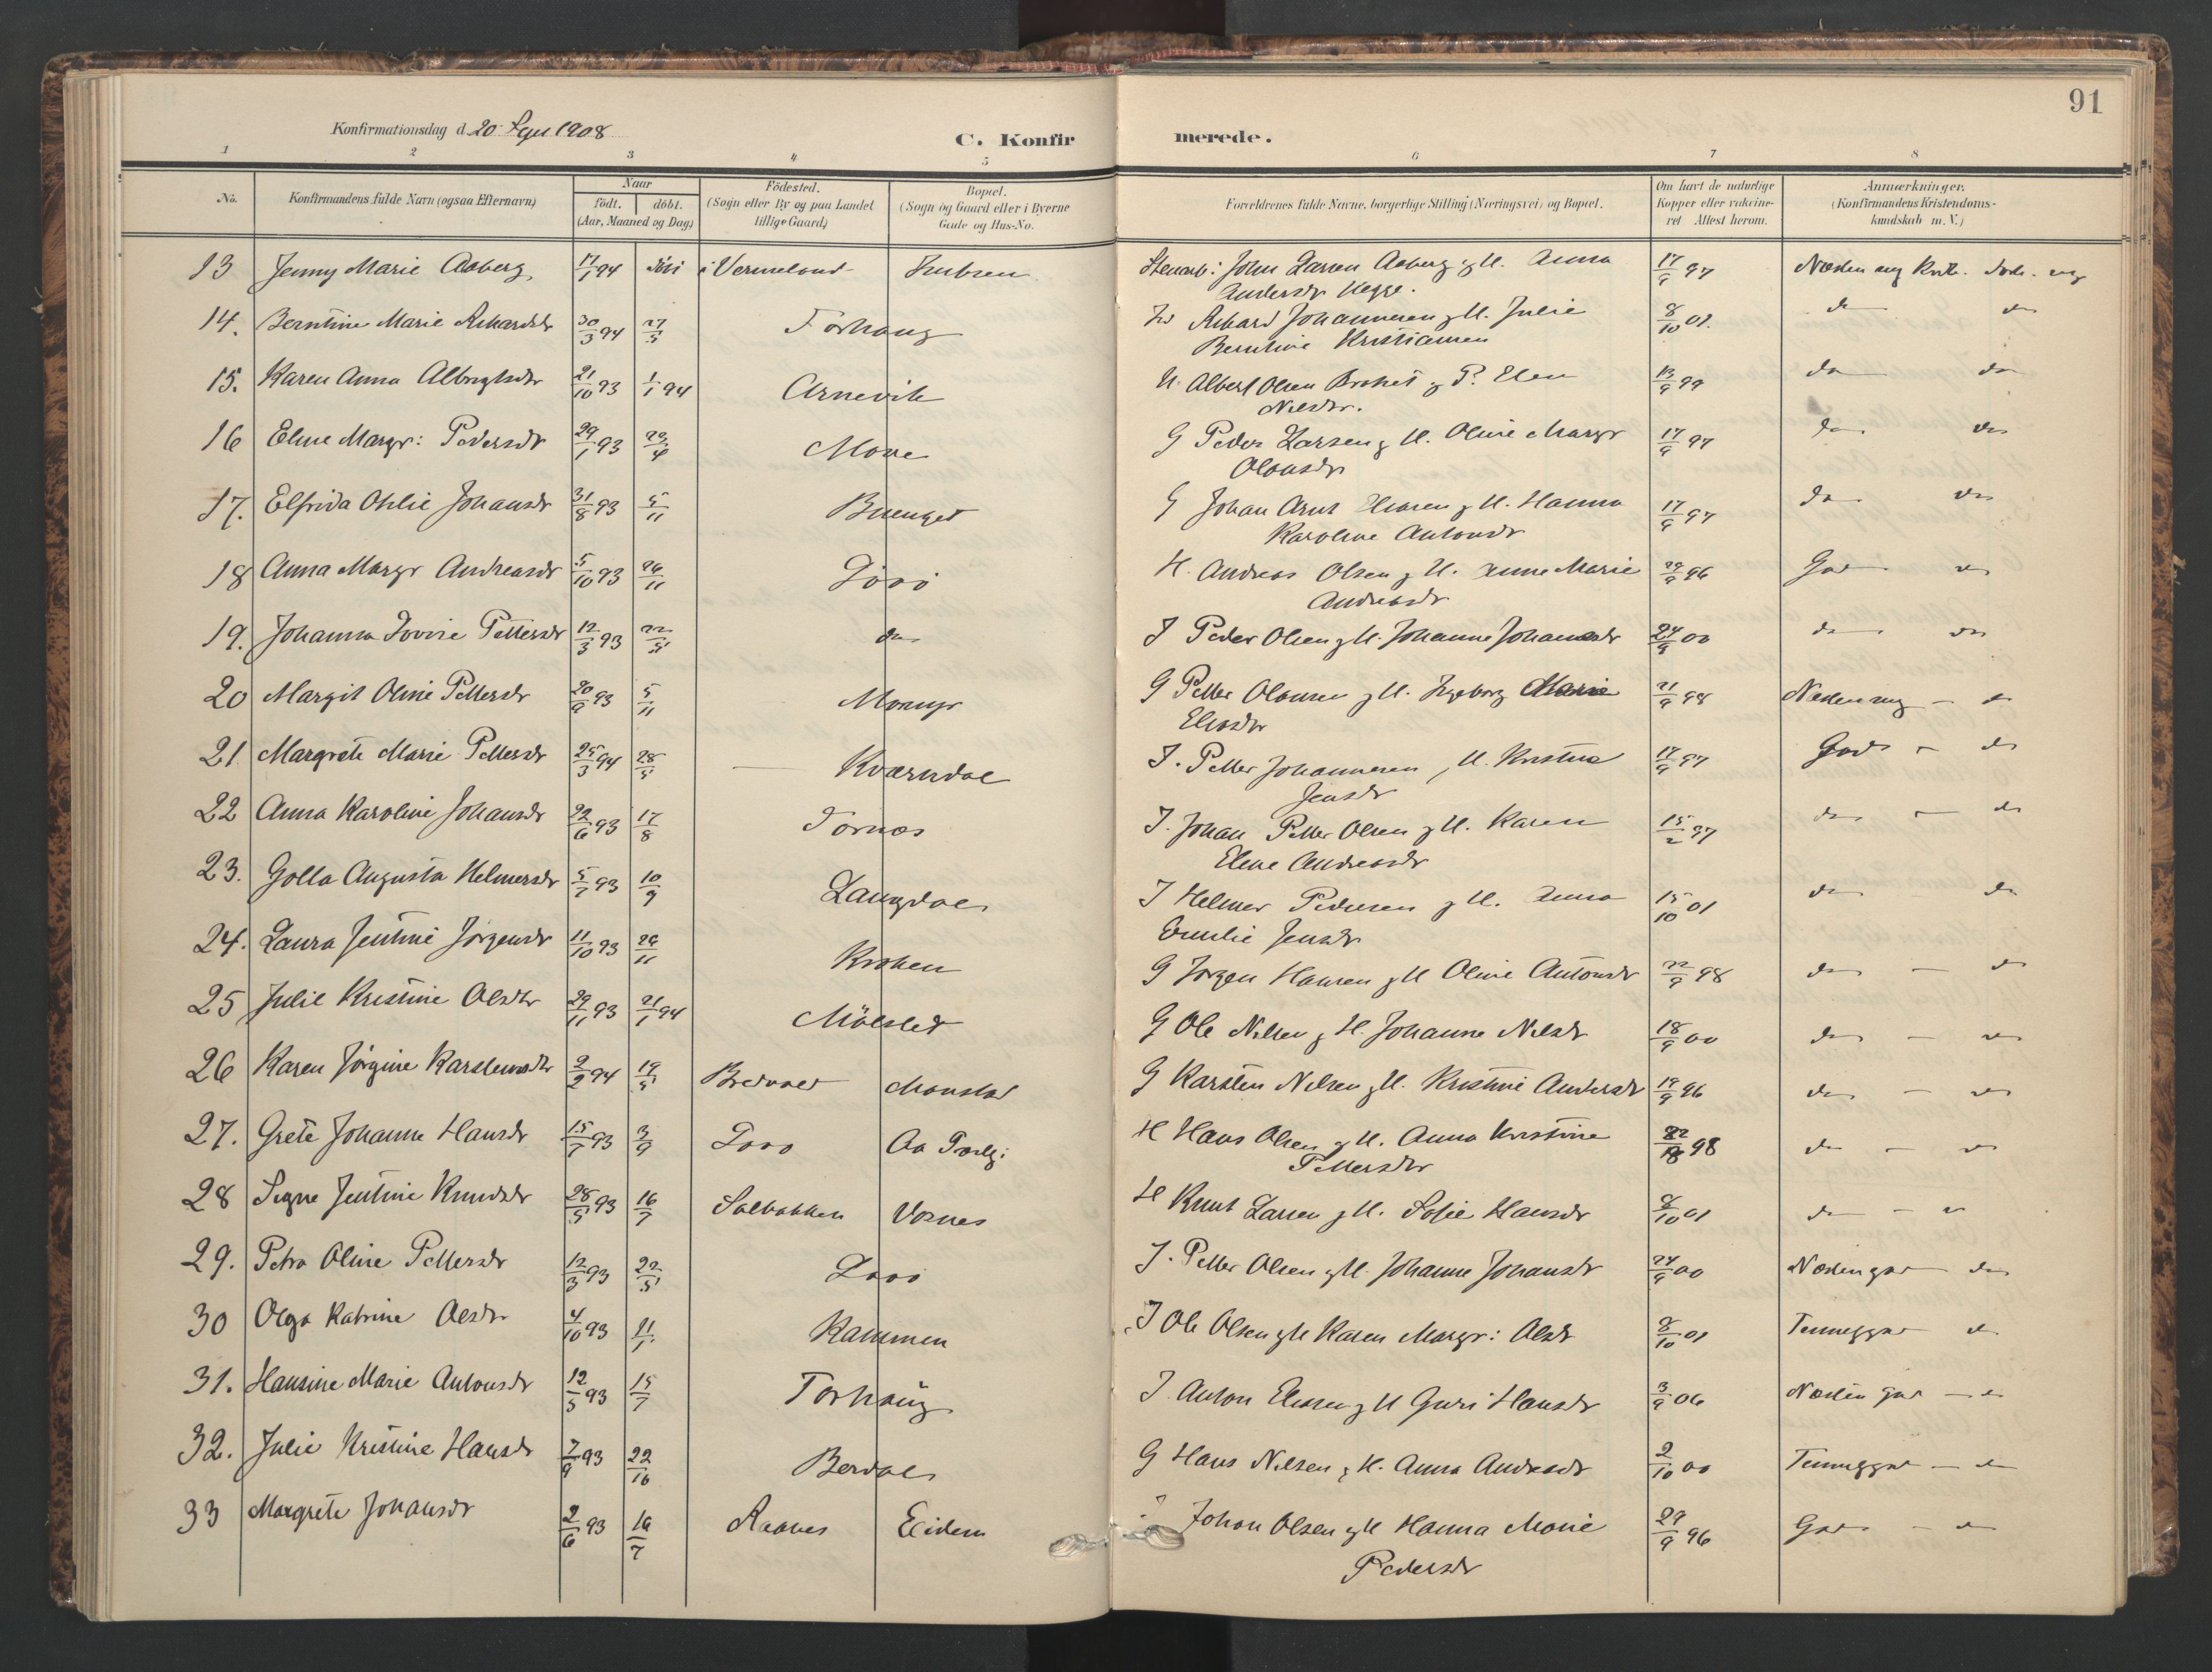 91
Konfirmationsdag d. 20 Sept 1908
C. Konfir merede.
1 2 3 4 5 6 7 8
No. Konfirmandens fulde Navn (ogsaa Efternavn) Naar födt. döbt. (Aar, Maaned og Dag) Födested. (Sogn eller By og paa Landet tillige Gaard) Bopæl. (Sogn og Gaard eller i Byerne Gade og Hus-No. Forældrenes fulde Navne, borgerlige Stilling (Næringsvei) og Bopæl. Om havt de naturlige Kopper eller vakcineret Attest herom. Anmærkninger. (Konfirmandens Kristendomskundskab m. V.)
13 Jenny Marie Aaberg 17/1 94 i Vermeland John Larsen Aaberg og H. Anna 17/9 97
Andersdr Hegge.
14. Berntine Marie Rikardsdr 30/3 94 27/5 Torhaug Rikard Johannesen og H. Julie 8/10 01.
Berntine Kristiansen
15. Karen Anna Albregtsdr 21/10 93 1/1 94 Arnevik Albert Olsen og P. Elen 13/9 99 do do
Nilsdr.
16 Eline Margr: Pedersdr 29/1 93 23/4 Moxe G Peder Larsen og H. Oline Margr 17/9 97 do do
Olausdr
17. Elfrida Otilie Johansdr 31/8 93 5/11 G Johan Arnt og H. Hanna 17/9 97 do do
Karoline Antonsdr
18 Anna Margr Andreasdr 5/10 93 26/11 H. Andreas Olsen og H. Anne Marie 29/9 96 God do
Andreasdr
19. Johanna Lovise Pettersdr 12/3 93 22/5 do J Peder Olsen og H. Johanne Johansdr 24/9 00 do do
20 Margit Oline Pettersdr 20/9 93 5/11 Momyr G Petter Olausen og H. Ingeborg Marie 21/9 98
Eliasdr
21 Margrete Marie Pettersdr 25/3 94 28/5 — Kværndal J. Petter Johannesen, H. Kristine 17/9 97 God - do
Jensdr
22 Anna Karoline Johansdr 22/6 93 17/8 Tornes J. Johan Petter Olsen og H. Karen 15/2 97 do - do
Elene Andreasdr
23. Golla Augusta Helmersdr 5/7 93 10/9 Langdal J Helmer Pedersen og H. Anna 15/10 01 do do
Emilie Jensdr
24. Laura Jentine Jörgensdr 11/10 93 26/11 Kroken G Jörgen Hansen og H Oline Antonsdr 22/9 98 do - do
25 Julie Kristine Olsdtr 29/11 93 21/1 94 Mölslet G Ole Nilsen og H. Johanne Nilsdr 18/9 00 do - do
26 Karen Jörgine Karstensdtr 2/2 94 19/5 Bredvold Monstad G Karsten Nilsen og H. Kristine Andersdr 19/9 96 do - do
27. Grete Johanne Hansdr 15/7 93 3/9 H Hans Olsen og H. Anna Kristine 98 do - do
Pettersdtr
28 Signe Jentine Knudsdr 28/5 93 16/7 Solbakken H Knut Larsen og H. Sofie Hansdr 8/10 01 do - do
29. Petra Oline Pettersdr 12/3 93 22/5 J. Petter Olsen og H. Johanne Johansdr 24/9 00 Næsten god do
30 Olga Katrine Olsdr 4/10 93 Kammen J Ole Olsen og H Karen Margr: Olsdr 8/10 01 Temmeggod do
31. Hansine Marie Antonsdr 12/5 93 15/7 Torhaug J. Anton Eliasen og H Guri Hansdr 3/9 06 Næsten God - do
32. Julie Kristine Hansdr 7/9 93 22/10 Berdal G Hans Nilsen og H. Anna Andersdr 2/10 00 Temmeggod - do
33 Margrete Johansdr 2/6 93 16/7 Raanes Eidem Johan Olsen og H Hanna Marie 29/9 96 God - do
Pedersdr